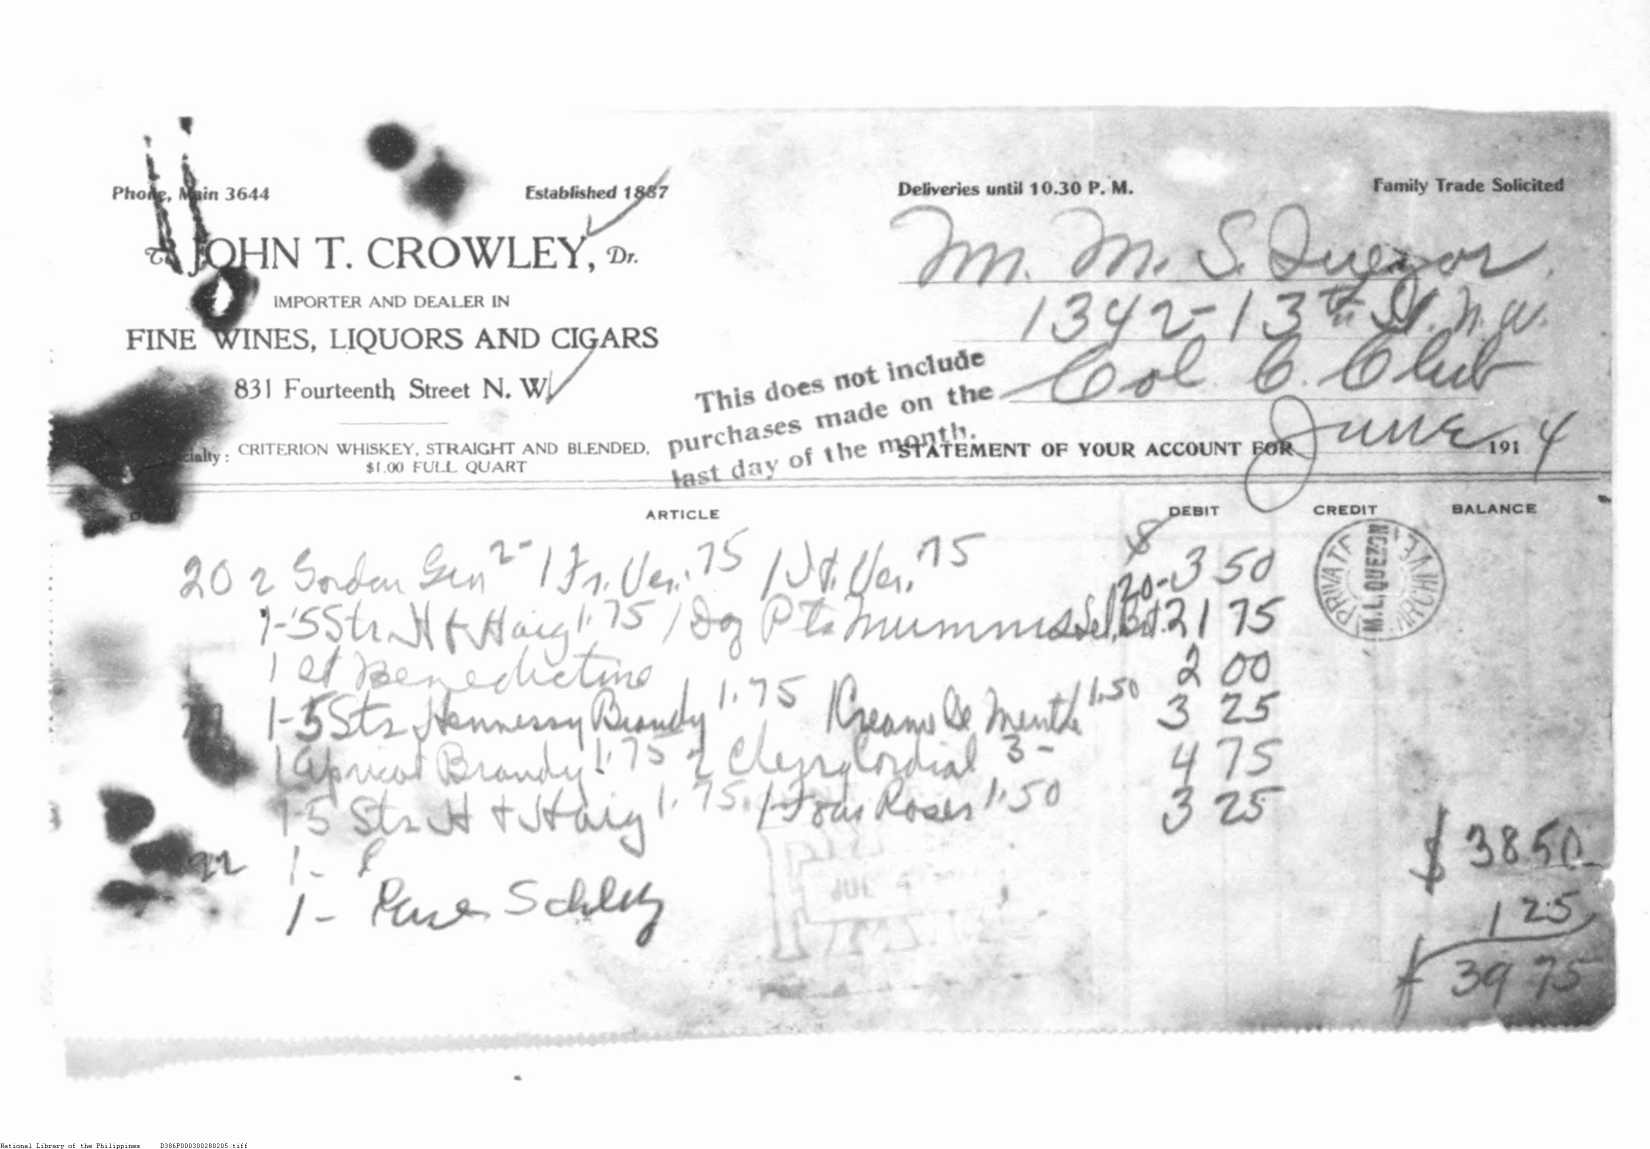 Phone, Main 3644
Established 1887
Deliveries until 10.30 P. M.
Family Trade Solicited
To JOHN T. CROWLEY, Dr.
IMPORTER AND DEALER IN
FINE WINES, LIQUORS AND CIGARS
831 Fourteenth Street N. W.
CRITERION WHISKEY, STRAIGHT AND BLENDED,
$1.00 FULL QUART
M. M. S. Quezon
1342-13th St. N. W.
Col. C. Club
This does not include
purchases made on the
last day of the month.
STATEMENT OF YOUR ACCOUNT FOR June 1914
ARTICLE DEBIT CREDIT BALANCE
20 2 Gordon Gin 2- 1 Fr. Ver. .75 1 It. Ver. .75 $ 3 50
1-5 Str H & Haig 1.75 1 Doz Pts Mumms Sel. 20- 21 75
1 Benedictine 2 00
1-5 Str Hennessy Brandy 1.75 1 Creame De Menth 1.50 3 25
1 Apricot Brandy 1.75 2 Cordial 3- 4 75
1-5 Str H & Haig 1.75 1 Four Roses 1.50 3 25
$ 38.50
22 1-
1- Schley 1 25
$ 39 75
PRIVATE ARCHIVE
M. L. QUEZON
JUL
National Library of the Philippines D386P000300280205.tiff